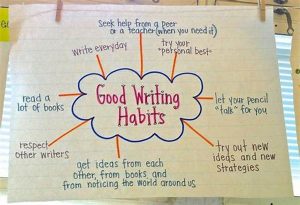 Seek help from a peer
or a teacher (when you need it)
write everyday
try your
"personal best"
read a
lot of books
Good Writing
Habits
let your pencil
"talk" for you
respect
other writers
try out new
ideas and new
strategies
get ideas from each
other, from books, and
from noticing the world around us